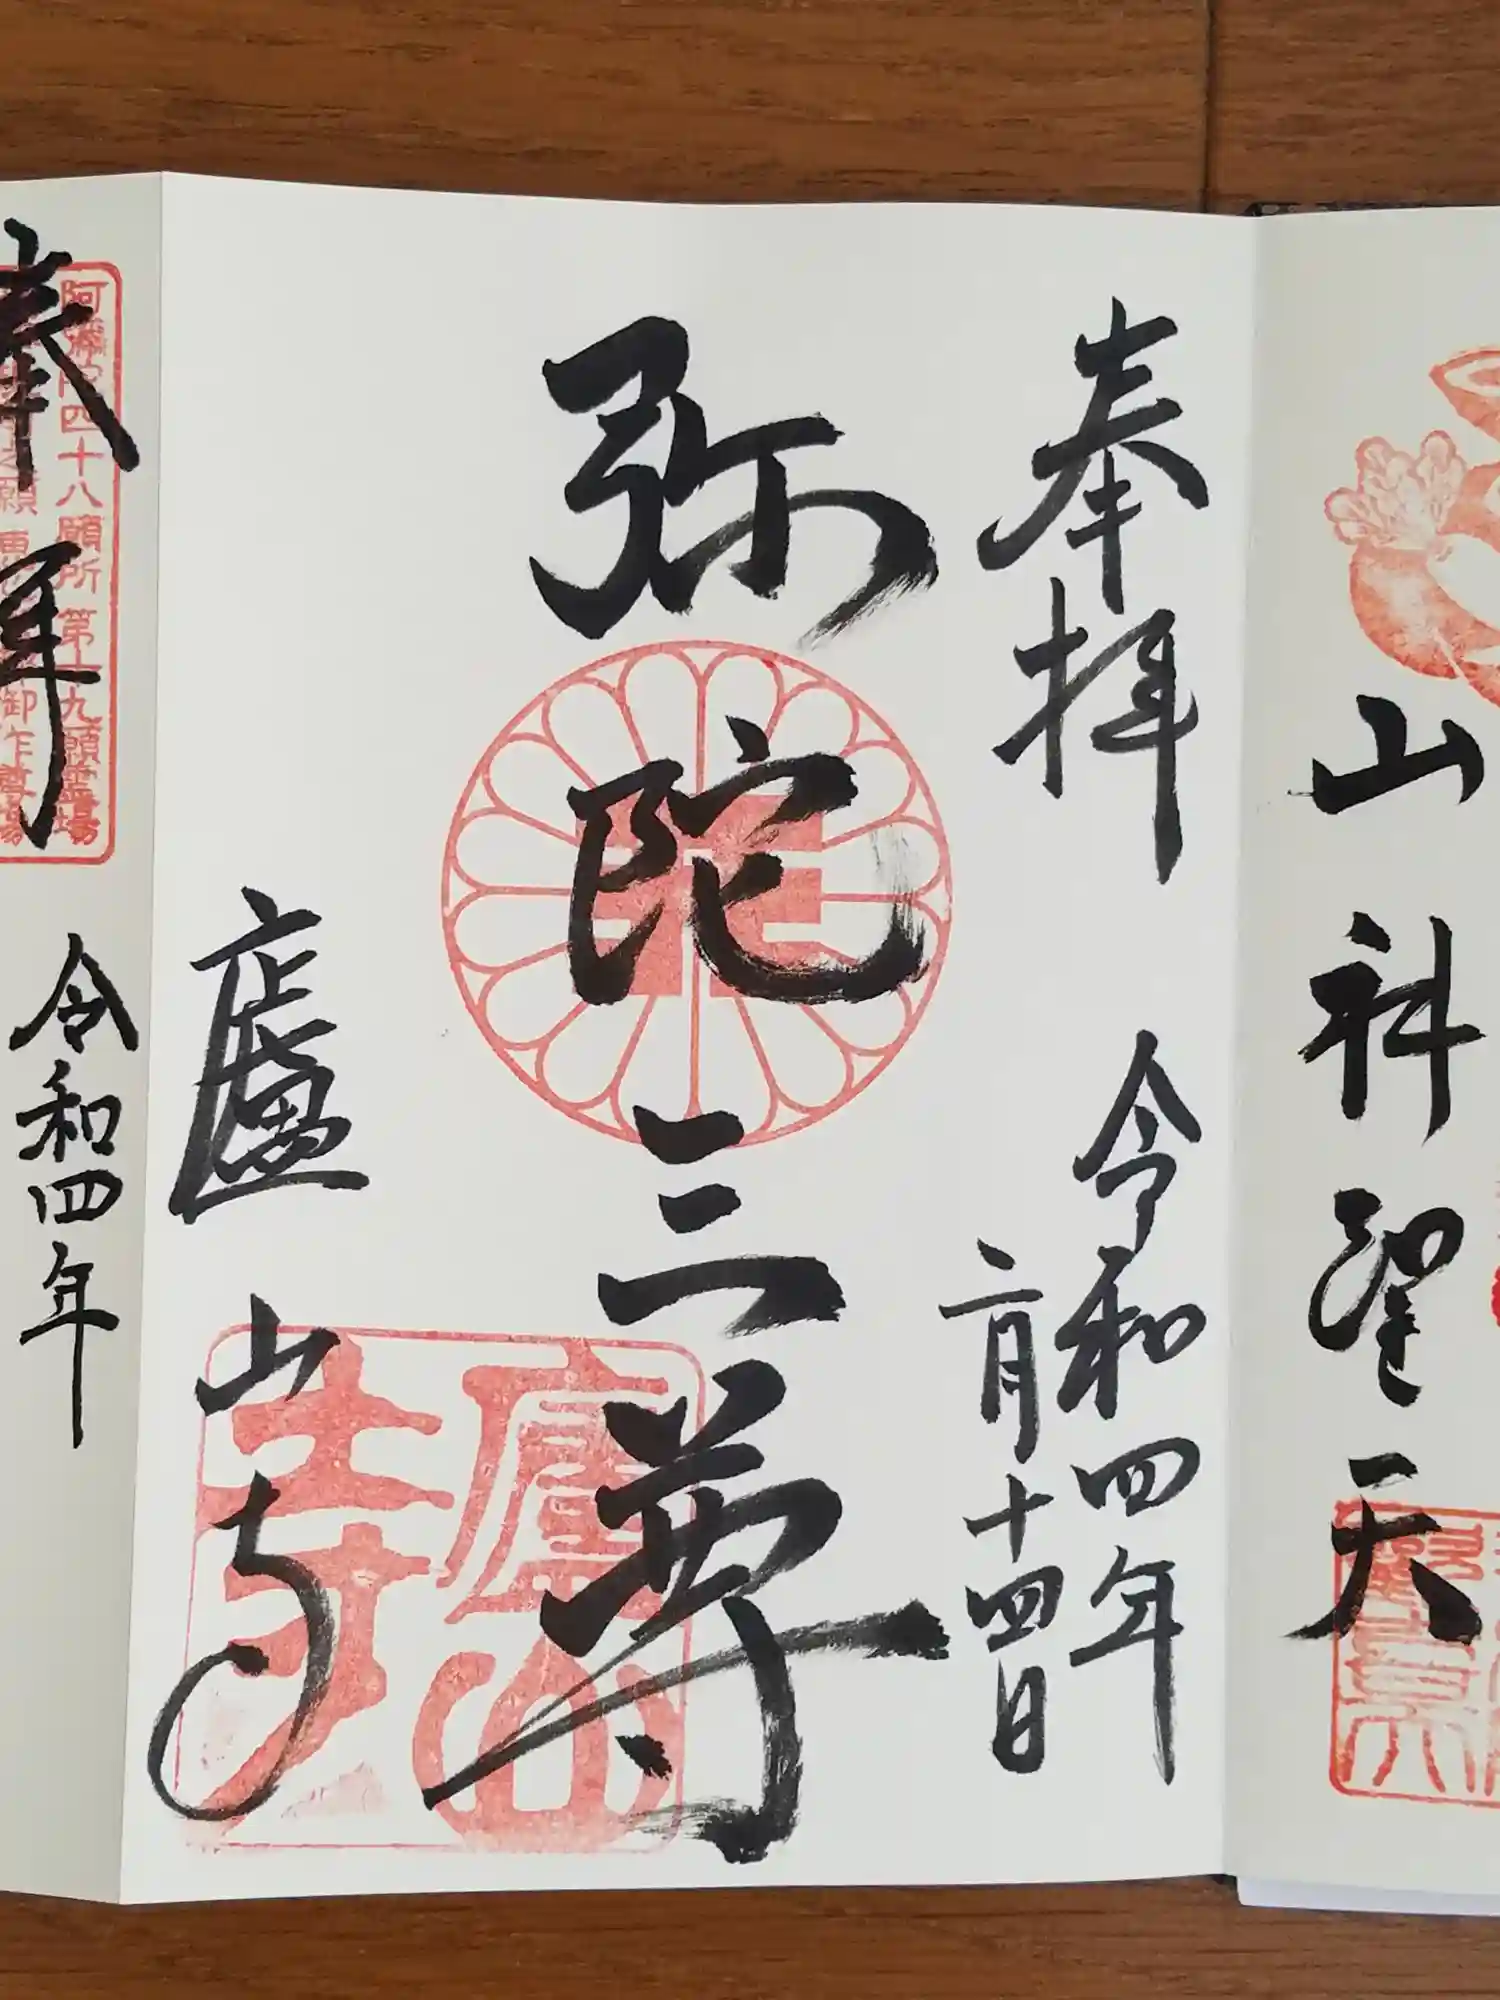 山科聖天
奉拝
令和四年
二月十四日
弥陀三尊
廬山寺
廬山寺
奉拝
令和四年
阿彌陀四十八願所第十九願霊場